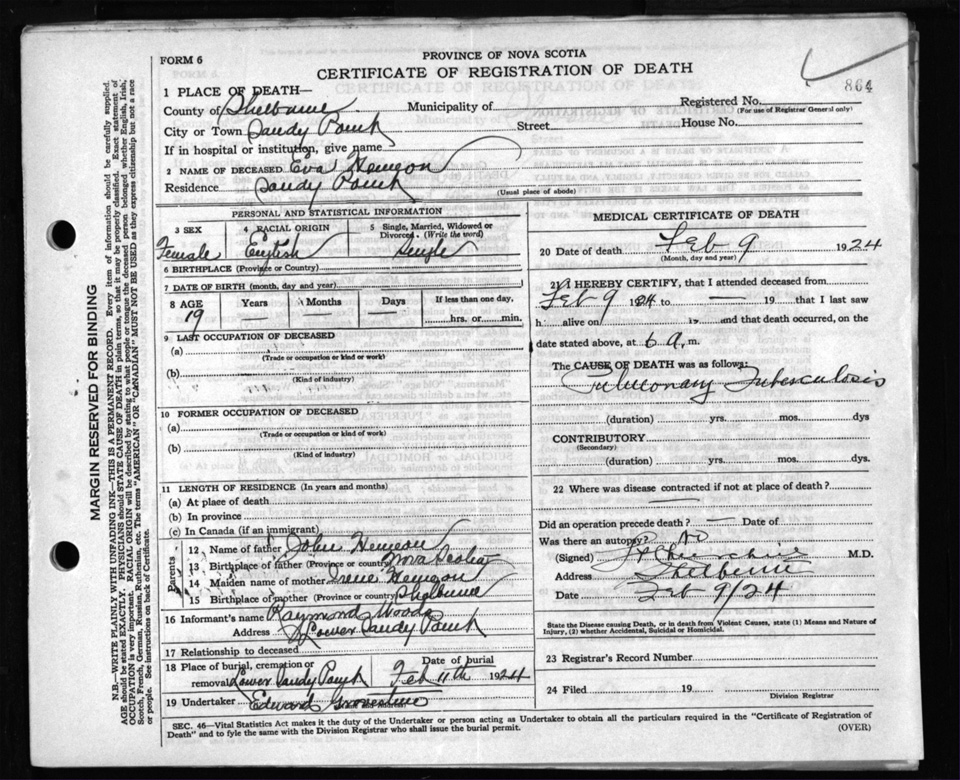 PROVINCE OF NOVA SCOTIA
FORM 6
CERTIFICATE OF REGISTRATION OF DEATH
864
1 PLACE OF DEATH—
County of Shelburne Municipality of Registered No.
(For use of Registrar General only)
City or Town Sandy Point Street House No.
If in hospital or institution, give name
2 NAME OF DECEASED Eva Hemeon
Residence Sandy Point
(Usual place of abode)
PERSONAL AND STATISTICAL INFORMATION
3 SEX 4 RACIAL ORIGIN 5 Single, Married, Widowed or Divorced. (Write the word)
Female English Single
6 BIRTHPLACE (Province or Country)
7 DATE OF BIRTH (month, day and year)
8 AGE Years Months Days If less than one day,
19 — — — hrs. or min.
9 LAST OCCUPATION OF DECEASED
(a)
(Trade or occupation or kind of work)
(b)
(Kind of industry)
10 FORMER OCCUPATION OF DECEASED
(a)
(Trade or occupation or kind of work)
(b)
(Kind of industry)
11 LENGTH OF RESIDENCE (In years and months)
(a) At place of death
(b) In province
(c) In Canada (if an immigrant)
Parents
12 Name of father John Hemeon
13 Birthplace of father (Province or country) Nova Scotia
14 Maiden name of mother Irene Hemeon
15 Birthplace of mother (Province or country) Shelburne
16 Informant's name Raymond Woods
Address Lower Sandy Point
17 Relationship to deceased
18 Place of burial, cremation or removal Lower Sandy Point Date of burial Feb 11th 1924
19 Undertaker Edward
MEDICAL CERTIFICATE OF DEATH
20 Date of death Feb 9 1924
(Month, day and year)
21 I HEREBY CERTIFY, that I attended deceased from
Feb 9 1924 to — 19 that I last saw
h alive on 19 and that death occurred, on
date stated above, at 6 a. m.
The CAUSE OF DEATH was as follows:
Pulmonary Tuberculosis
(duration) yrs. mos. dys
CONTRIBUTORY
(Secondary)
(duration) yrs. mos. dys.
22 Where was disease contracted if not at place of death?
—
Did an operation precede death? — Date of
Was there an autopsy? no
(Signed) M.D.
Address Shelburne
Date Feb 9/24
State the Disease causing Death, or in death from Violent Causes, state (1) Means and Nature of
Injury, (2) whether Accidental, Suicidal or Homicidal.
23 Registrar's Record Number
24 Filed 19
Division Registrar
SEC. 46—Vital Statistics Act makes it the duty of the Undertaker or person acting as Undertaker to obtain all the particulars required in the "Certificate of Registration of
Death" and to fyle the same with the Division Registrar who shall issue the burial permit. (OVER)
MARGIN RESERVED FOR BINDING
N.B.—WRITE PLAINLY WITH UNFADING INK—THIS IS A PERMANENT RECORD. Every item of information should be carefully supplied.
AGE should be stated EXACTLY. PHYSICIANS should STATE CAUSE OF DEATH in plain terms, so that it may be properly classified. Exact statement of
OCCUPATION is very important. RACIAL ORIGIN will be described by stating to what people or tongue the deceased person belonged whether English, Irish,
Scotch, French, German, Russian, Ruthenian, etc. The terms "AMERICAN" OR "CANADIAN" MUST NOT BE USED as they express citizenship but not a race
or people. See instructions on back of Certificate.